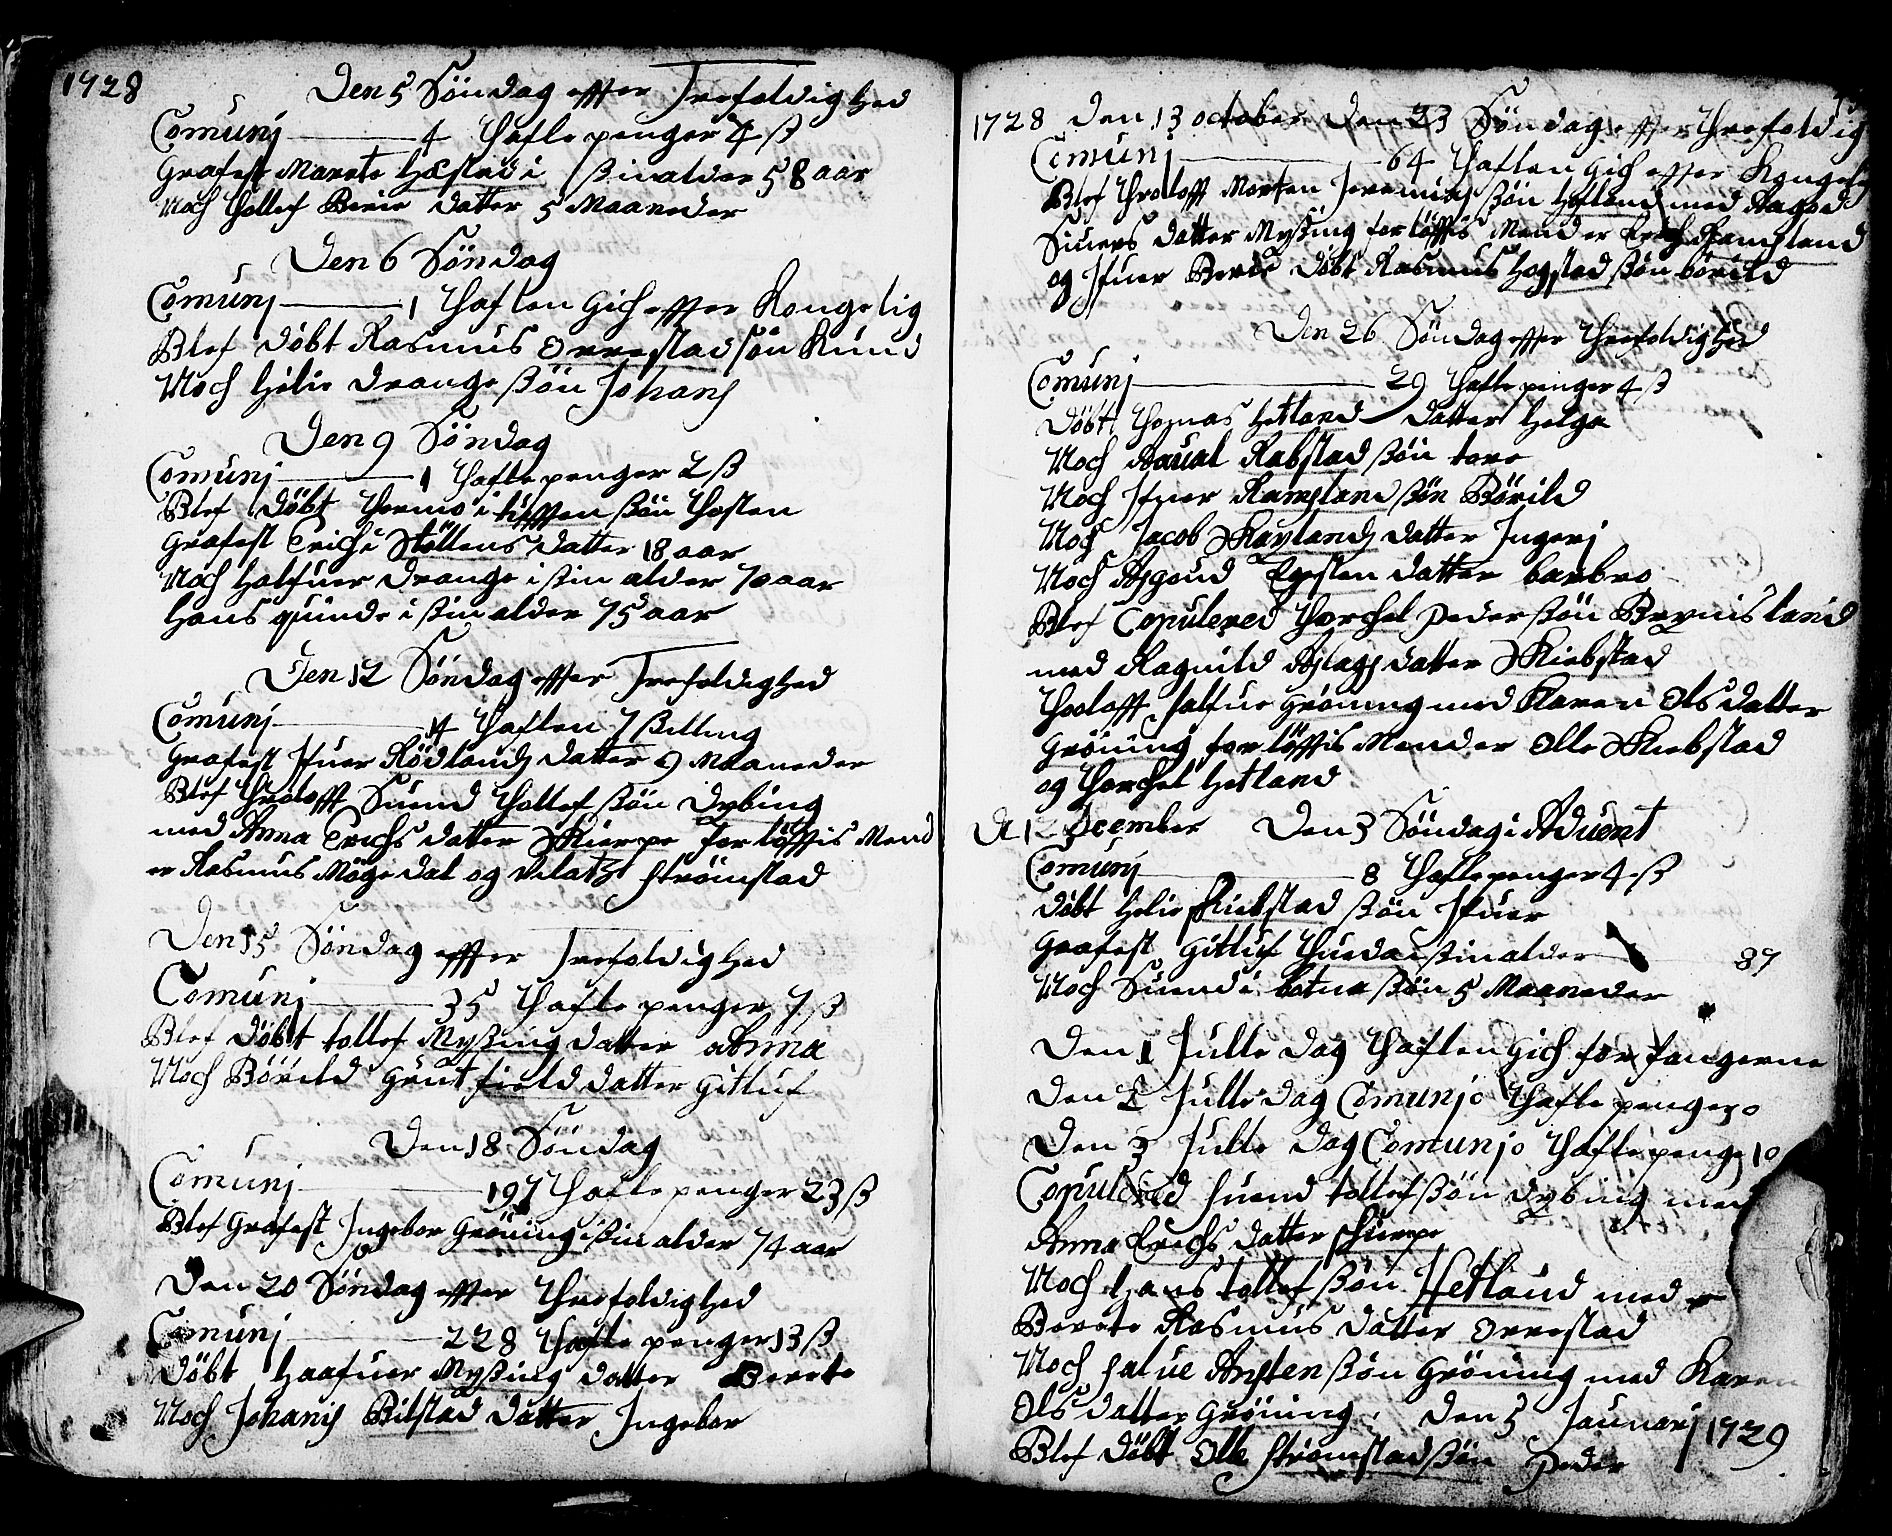 1728
Den 5 Söndag effter Trefoldighed
Comunj 4 Taffle penger 4 ß
Grafest Marete Hæstad i ßin alder 58 aar
Noch Tollef Berie datter 5 Maaneder
Den 6 Söndag
Comunj 1 Taflen Gich effter Kongelig
Blef döbt Rasmus Orrestad sön Knud
Noch Helie Drange ßön Johans
Den 9 Söndag
Comunj 1 Tafle penger 2 ß
Blef döbt Thormo i tufften ßön Thosten
Grafest Erich i Stöllens datter 18 aar
Noch Halfuer Drange i ßin alder 70 aar
Hans quinde i ßin alder 75 aar
Den 12 Söndag effter Trefoldighed
Comunj 4 Taflen 7 ßilling
Grafest Ifuer Rödlands datter 9 Maaneder
Blef Troloff Suend Tollef ßön Dybing
med Anna Erichs datter Skierpe forlöffis Mend
er Rasmus Mögedal og Velatz Strömstad
Den 15 Söndag effter Trefoldighed
Comunj 35 Tafle penger 7 ß
Blef döbt tollef Myßing datter Anna
Noch Börild Grutfield datter Gitluf
Den 18 Söndag
Comunj 197 Tafle penger 23 ß
Blef Grafest Ingebor Gröning i ßin alder 74 aar
Den 20 Söndag effter Threfoldighed
Comunj 228 Tafle penger 13 ß
Döbt Haafuer Myßing datter Berete
Noch Johanis Bilstad datter Ingebor
1728 Den 13 october Den 23 Söndag effter Threfoldig
Comunj 64 Taflen Gich effter Kongelig
Blef Troloff Morten Jeremias ßön Hetland med Aagod
Siuers datter Myßing forlöffis Mender Erich Ramsland
og Ifuer Berie döbt Rasmus Hogstad ßön börild
Den 26 Söndag effter Threfoldighed
Comunj 29 Tafle penger 4 ß
Döbt Thomas Hetland datter Helga
Noch Aaual Rabstad ßön tore
Noch Ifuer Ramsland ßön Börild
Noch Jacob Skaylands datter Ingerj
Noch Asgoud Egesten datter barbro
Blef Copulered Thorchel Peder ßön Brynis land
med Ragnild Aslags datter Skiebstad
Troloff Halfue Gröning med Karen Ols datter
Gröning forlöffis Mender Olle Skiebstad
og Thorchel Hetland
D 12 December Den 3 Söndag i Aduent
Comunj 8 Tafle penger 4 ß
Döbt Helie Skiebstad ßön Ifuer
Grafest Gitluf Hueda i ßin alder 87
Noch Suend i botne ßön 5 Maaneder
Den 1 Julle dag Taflen Gich for fangerne
Den 2 Julle dag Comunj 0 Tafle penger 0
Den 3 Julle dag Comunj 0 Tafle penge 10
Copulered Suend tollef ßön Dybing med
Anna Erichs datter Skierpe
Noch Hans tollef ßön Hetland med
Berete Rasmus datter Orrestad
Noch Salue Ansten ßön Gröning med Karen
Ols datter Gröning. Den 5 Januarj 1729
Blef döbt Olle Strömstad ßön Peder